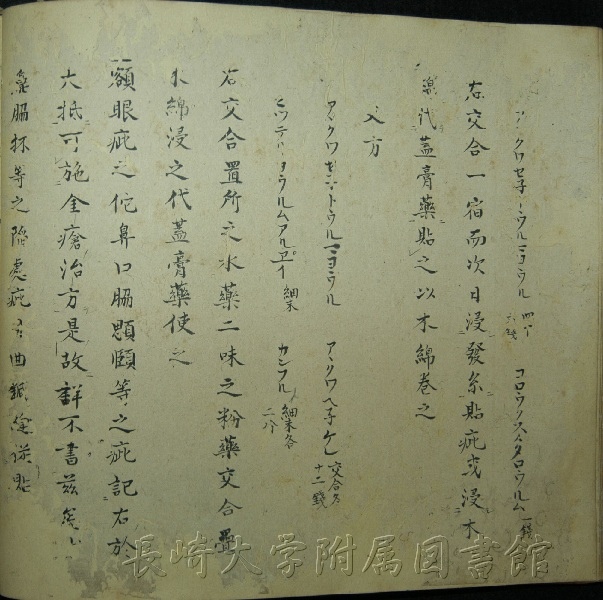 アヽクワセ子ラウルミヨウル 四十六銭 コロウクスヽタロウルム 一銭
右交合一宿而次日浸發糸貼疵或浸木
綿代蓋膏藥貼之以木綿巻之
又方
アヽクワ トウルマニヨウル アヽクワヘ子ケレ 交合各十二銭
ヒッテリヨウルムアルエイ 細末 カンフル 細末各二分
右交合置所之水藥二味之粉藥交合疊
木綿浸之代蓋膏藥使之
額眼疵之佗鼻口脇顋頤等之疵記右於
大抵可施金瘡治方是故詳不書茲矣
脇杯等之陥處疵者曲針
長崎大学附属図書館